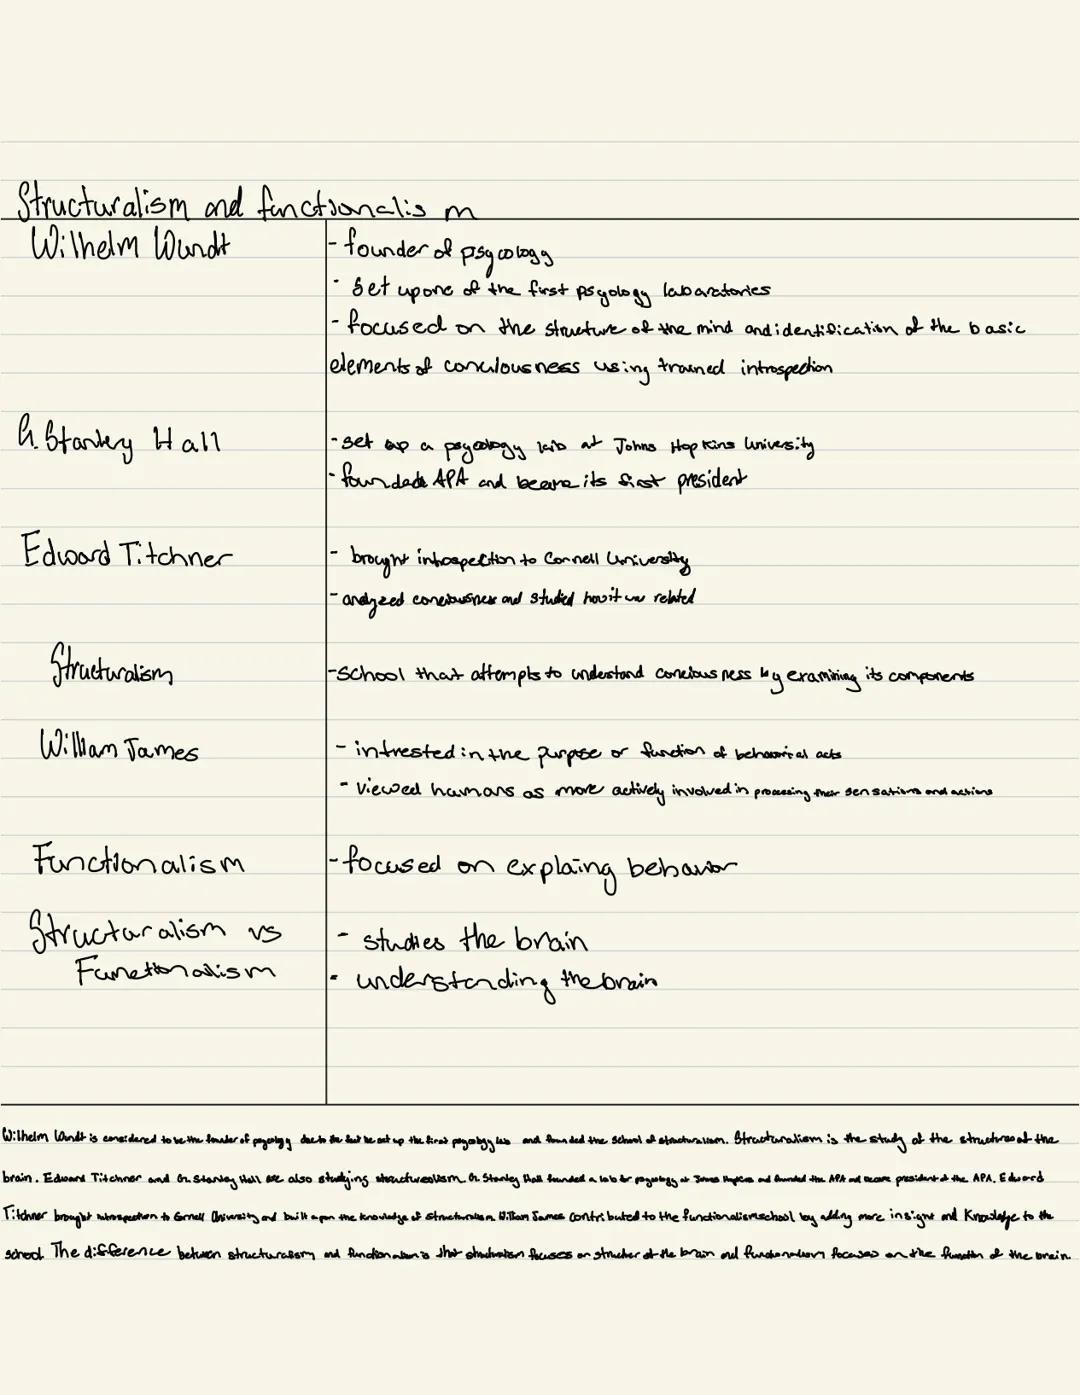 Structuralism and functionalism
Wilhelm Wundt
- founder of psycology
- Set up one of the first psyology labaratories
- focused on the structure of the mind and identification of the basic
elements of conciousness using trained introspection
G. Stanley Hall
- set up a psycology lab at Johns Hopkins University
- founded APA and became its first president
Edward Titchner
- brought introspection to Cornell University
- analyzed conciousness and studied how it was related
Structuralism
- school that attempts to understand conciousness by examining its components
William James
- intrested in the purpose or function of behavorial acts
- viewed humans as more actively involved in processing their sensations and actions
Functionalism
- focused on explaing behavior
Structuralism vs
Functionalism
- studies the brain
- understanding the brain
Wilhelm Wundt is considered to be the founder of psycology due to the fact he set up the first psycology lab and founded the school of structuralism. Structuralism is the study of the structures of the
brain. Edward Titchner and G. Stanley Hall are also studying structuralism. G. Stanley Hall founded a lab for psycology at Johns Hopkins and founded the APA and became president of the APA. Edward
Titchner brought introspection to Cornell University and built upon the knowledge of structuralism. William James contributed to the functionalism school by adding more insight and knowledge to the
school. The difference between structuralism and functionalism is that structuralism focuses on structure of the brain and functionalism focuses on the function of the brain.